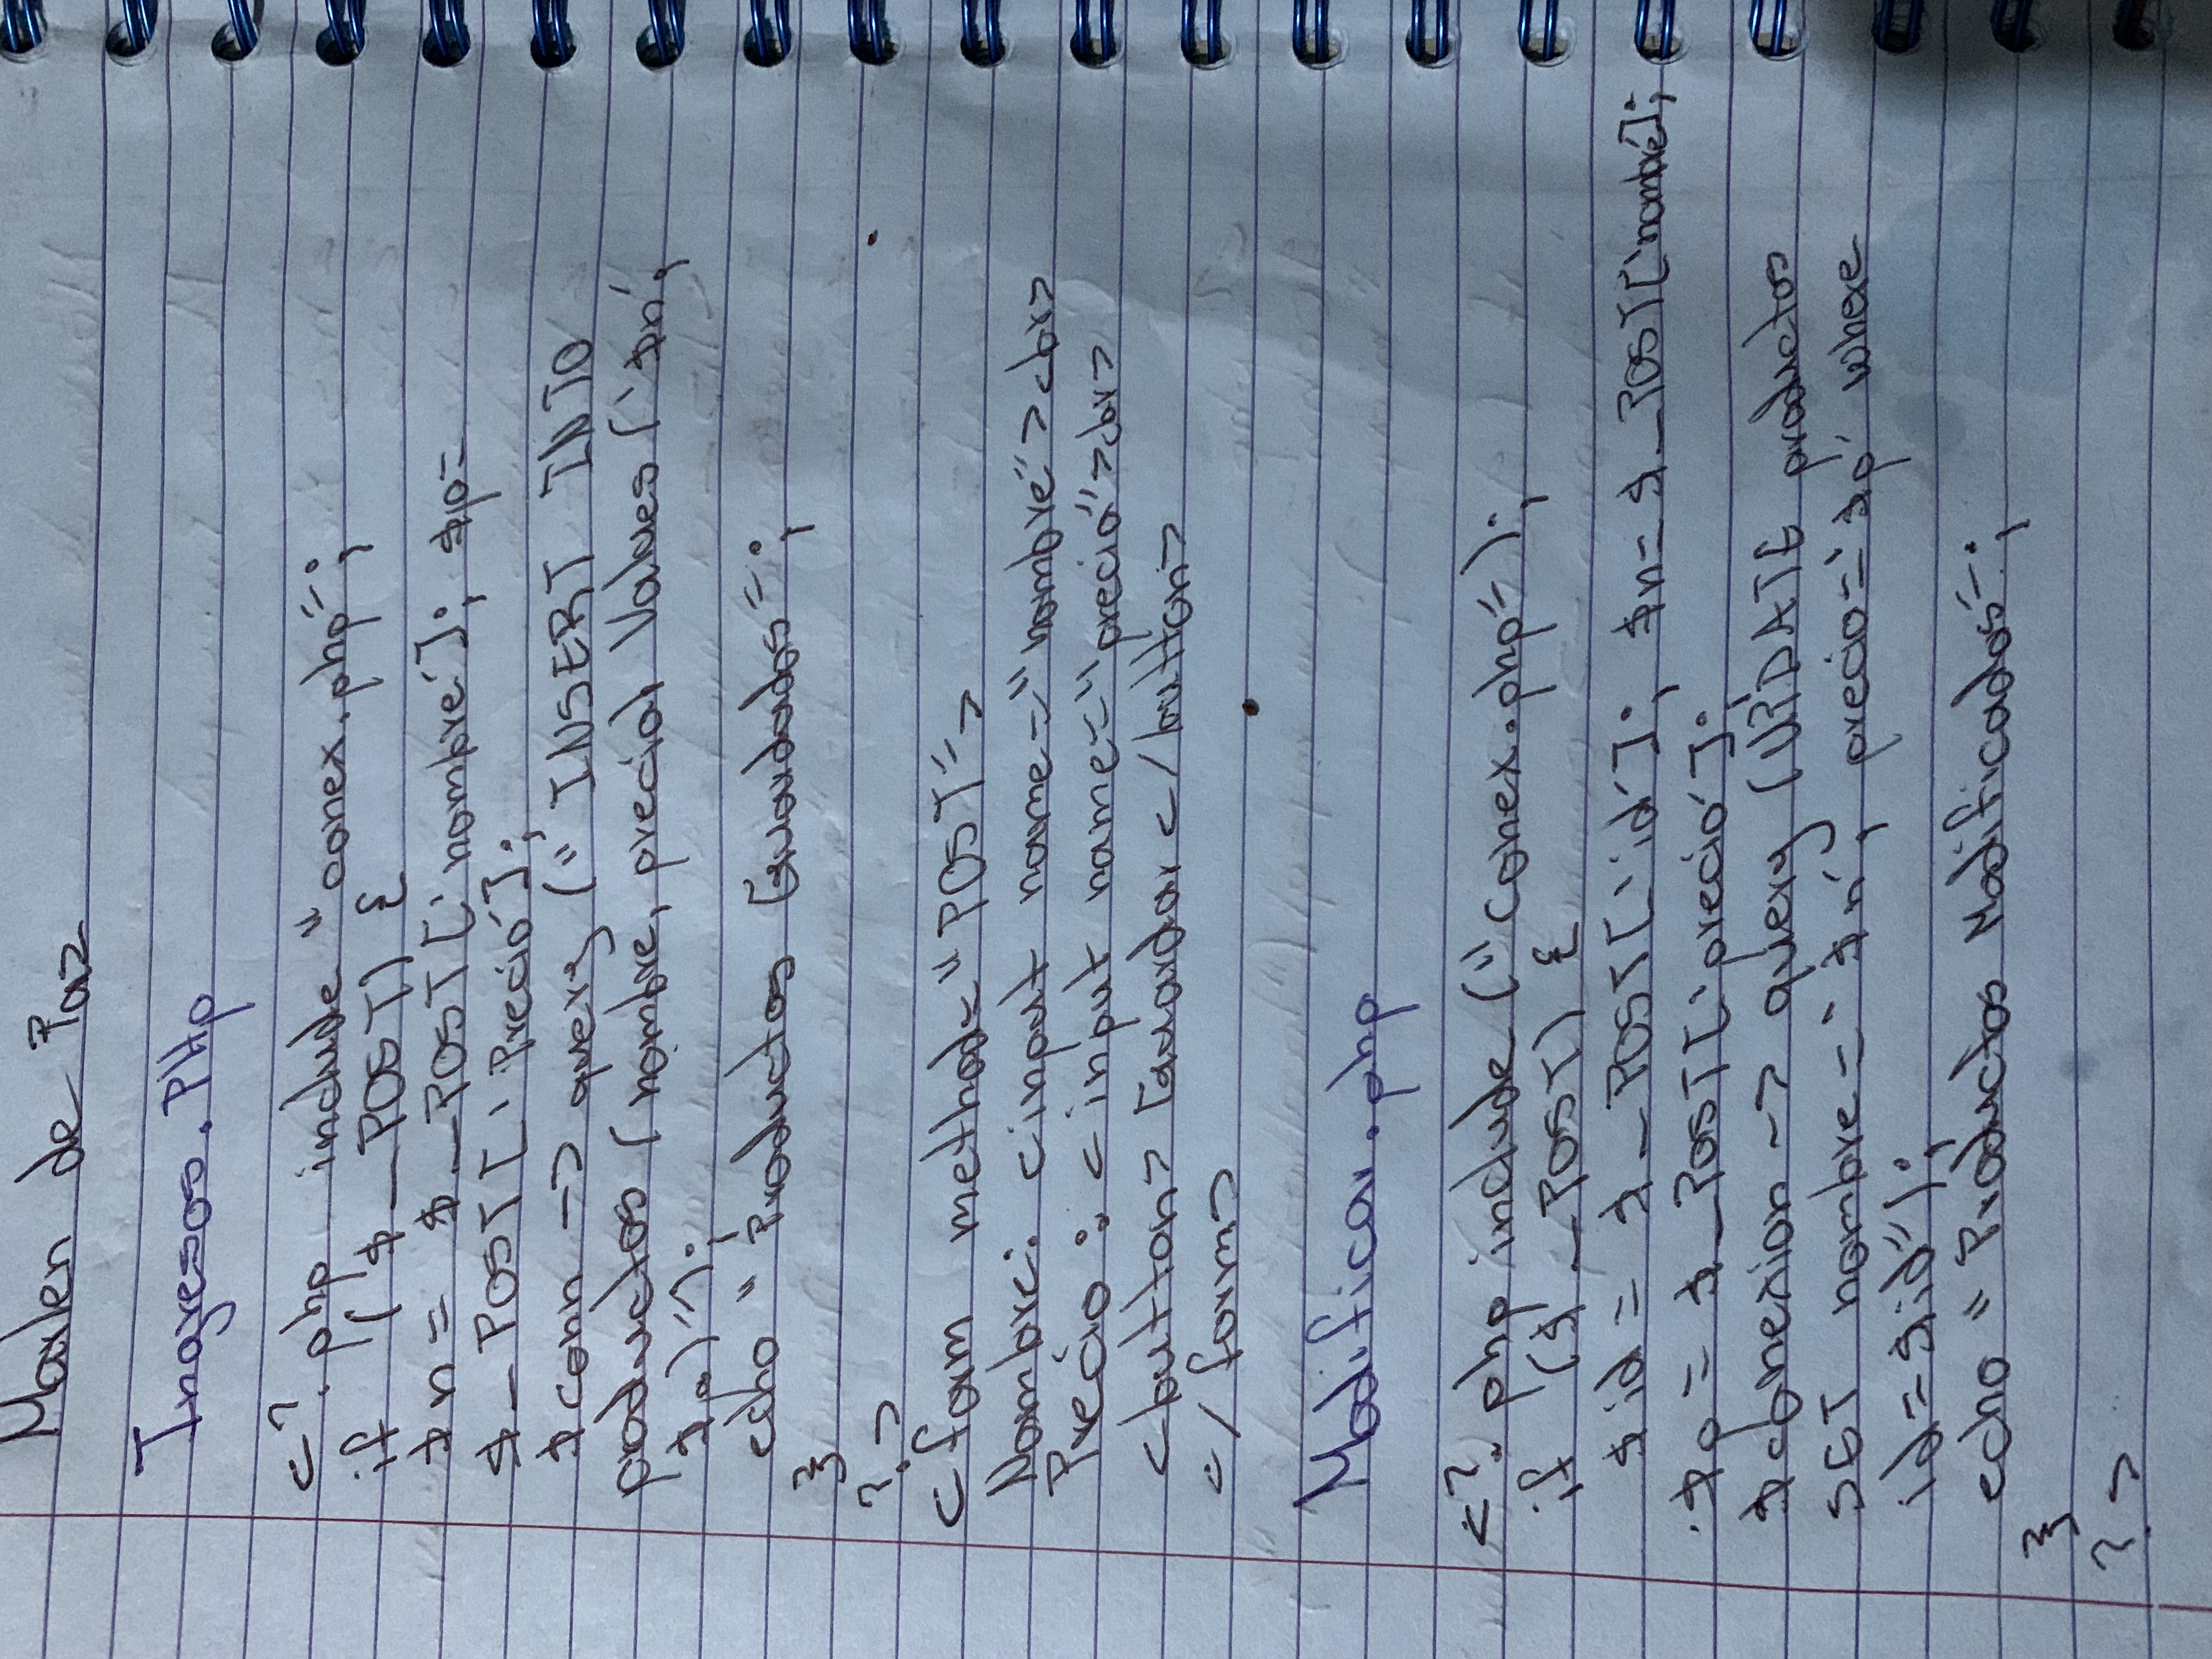 Marlen de Paz
Ingresos.PHp
<?.php include "conex.php";
if ($_POST) {
$n = $_POST['nombre']; $p=
$_POST['Precio'];
$conn -> query ("INSERT INTO
productos (nombre, precio) Values ('$n',
$p)");
echo "Productos Guardados";
}
?>
<form method="POST">
Nombre: <input name="nombre"><br>
Precio: <input name="precio"><br>
<button> Guardar </button>
</form>
Modificar.php
<?.php include ("Conex.php");
if ($_POST) {
$id = $_POST['id']; $n=$_POST['nombre'];
$p = $_POST['precio'];
$conexion -> query (UPDATE productos
SET nombre='$n', precio='$p' where
id=$id");
echo "Productos Modificados";
}
?>